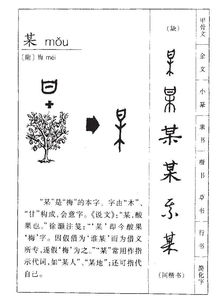 某 mǒu
[附] 梅 méi
“某”是“梅”的本字。字由“木”、
“甘”构成,会意字。《说文》:“某,酸
果也。”徐灏注笺:“‘某’即今酸果
‘梅’字。因假借为‘谁某’而为借义
所专,遂假‘梅’为之。”“某”常用作指
示代词,如“某人”、“某地”;还可指代
自己。
(缺)
某
某
某
(同楷书)
甲骨文
金文
小篆
隶书
楷书
草书
行书
简化字